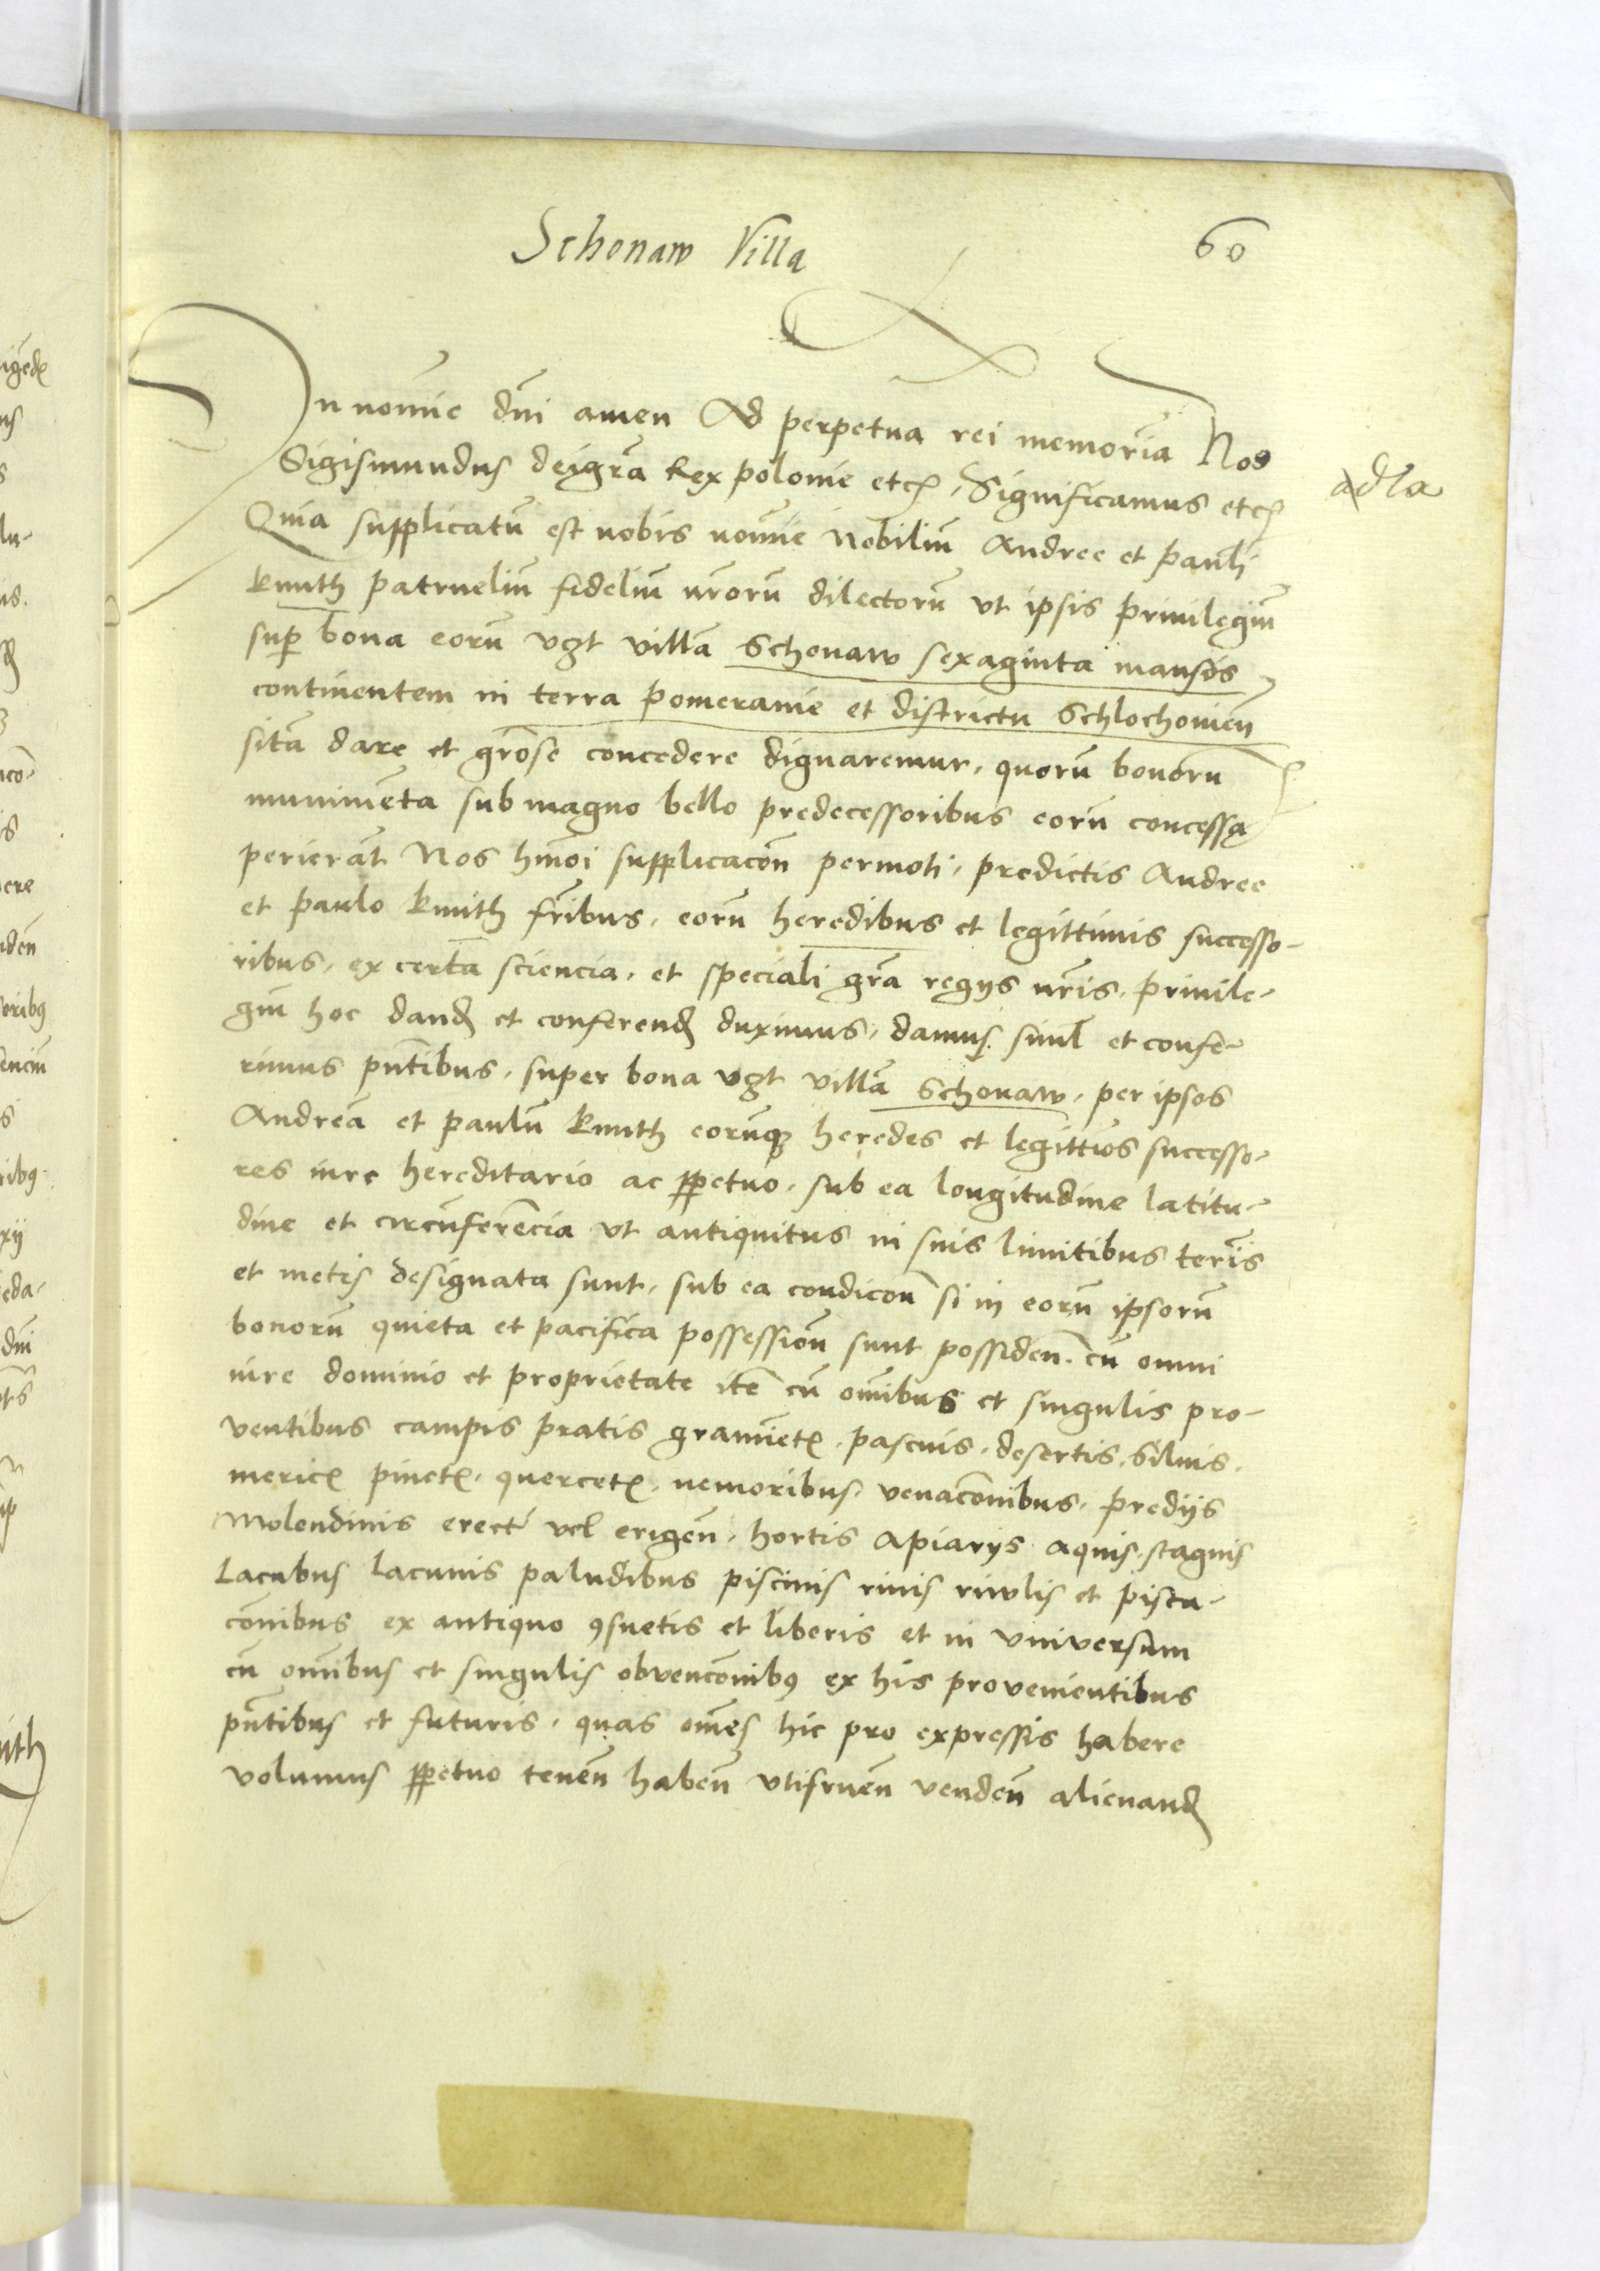 Schonaw Villa
60
In nomie dni amen Ad perpetua rei memoria Nos
Sigismundus deigra Rex polonie etc, Significamus etc
Quia supplicatu est nobis nomie Nobiliu Andree et pauli
knuth patrueliu fideliu nroru dilectoru vt ipsis priuilegiu
sup bona eoru vzt villa Schonaw sexaginta mansos
continentem in terra pomeranie et districtu Schlochouien
sita dare et grose concedere dignaremur, quoru bonoru
munimenta sub magno bello predecessoribus eoru concessa
perierat Nos hmoi supplicacon permoti, predictis Andree
et paulo knuth fribus, eoru heredibus et legittimis successo-
ribus, ex certa sciencia, et speciali gra regijs nris, priuile-
giu hoc dand et conferend duximus, damus siml et confe-
rimus pntibus, super bona vzt villa Schonaw, per ipsos
Andrea et paulu knuth eorumq heredes et legittios successo-
res iure hereditario ac ppetuo, sub ea longitudine latitu-
dine et circuferencia vt antiquitus in suis limitibus teris
et metis designata sunt, sub ea condicon si in eoru ipsoru
bonoru quieta et pacifica possession sunt possiden. cu omni
iure dominio et proprietate ite cu omibus et singulis pro-
ventibus campis pratis gramiet, pascuis, desertis, siluis,
meric pinet, quercet, nemoribus, venaconibus, predijs
Molendinis erect vel erigen, hortis Apiarijs aquis, stagnis
Lacubus lacunis paludibus piscinis riuis riwlis et pisca-
conibus ex antiquo 9suetis et liberis et in vniversum
cu omibus et singulis obvenconib9 ex his provenientibus
pntibus et futuris, quas omes hic pro expressis habere
volumus ppetuo tenen haben vtifruen venden alienand